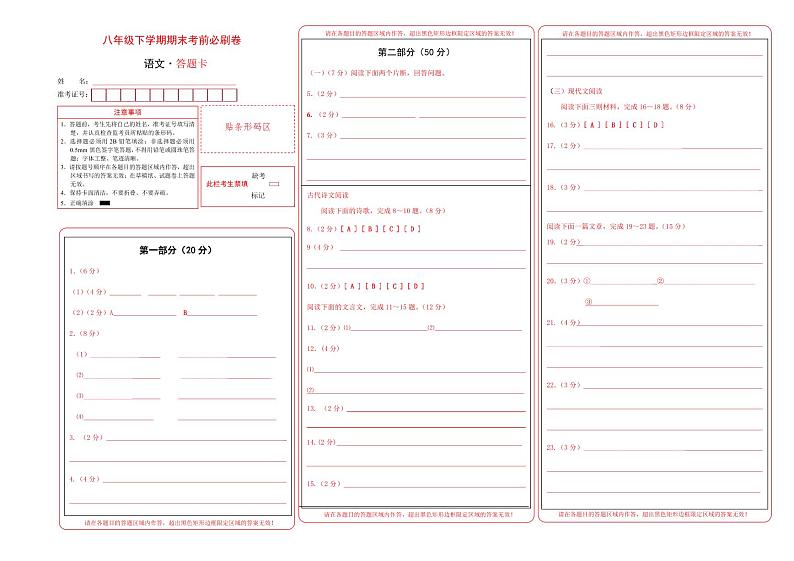 八年级下学期期末考前必刷卷
语文·答题卡
姓 名：
准考证号：
注意事项
1．答题前，考生先将自己的姓名，准考证号填写清
楚，并认真检查监考员所粘贴的条形码。
2．选择题必须用 2B 铅笔填涂；非选择题必须用
0.5mm 黑色签字笔答题，不得用铅笔或圆珠笔答
题；字体工整、笔迹清晰。
3．请按题号顺序在各题目的答题区域内作答，超出
区域书写的答案无效；在草稿纸、试题卷上答题
无效。
4．保持卡面清洁，不要折叠、不要弄破。
5．正确填涂
贴条形码区
此栏考生禁填
缺考
标记
第一部分（20 分）
1.（6 分）
（1）（4 分）
（2）（2 分）A B
2.（8 分）
（1）
⑵
⑶
⑷
3. （2 分）
4.（4 分）
请在各题目的答题区域内作答，超出黑色矩形边框限定区域的答案无效！
请在各题目的答题区域内作答，超出黑色矩形边框限定区域的答案无效！
第二部分（50 分）
（一）（7 分）阅读下面两个片断，回答问题。
5.（2 分）
6.（2 分）
7.（3 分）
古代诗文阅读
阅读下面的诗歌，完成 8～10 题。（8 分）
8.（2 分）[ A ] [ B ] [ C ] [ D ]
9（4 分）
10.（2 分）[ A ] [ B ] [ C ] [ D ]
阅读下面的文言文，完成 11～15 题。（12 分）
11.（2 分）⑴ ⑵
12.（4 分）
⑴
⑵
13. （2 分）
14.（2 分）
15.（2 分）
请在各题目的答题区域内作答，超出黑色矩形边框限定区域的答案无效！
请在各题目的答题区域内作答，超出黑色矩形边框限定区域的答案无效！
（三）现代文阅读
阅读下面三则材料，完成 16～18 题。（8 分）
16.（3 分）[ A ] [ B ] [ C ] [ D ]
17.（2 分）
18.（3 分）
阅读下面一篇文章，完成 19～23 题。（15 分）
19.（2 分）
20.（3 分）① ②
③
21.（4 分）
22.（3 分）
23.（3 分）
请在各题目的答题区域内作答，超出黑色矩形边框限定区域的答案无效！